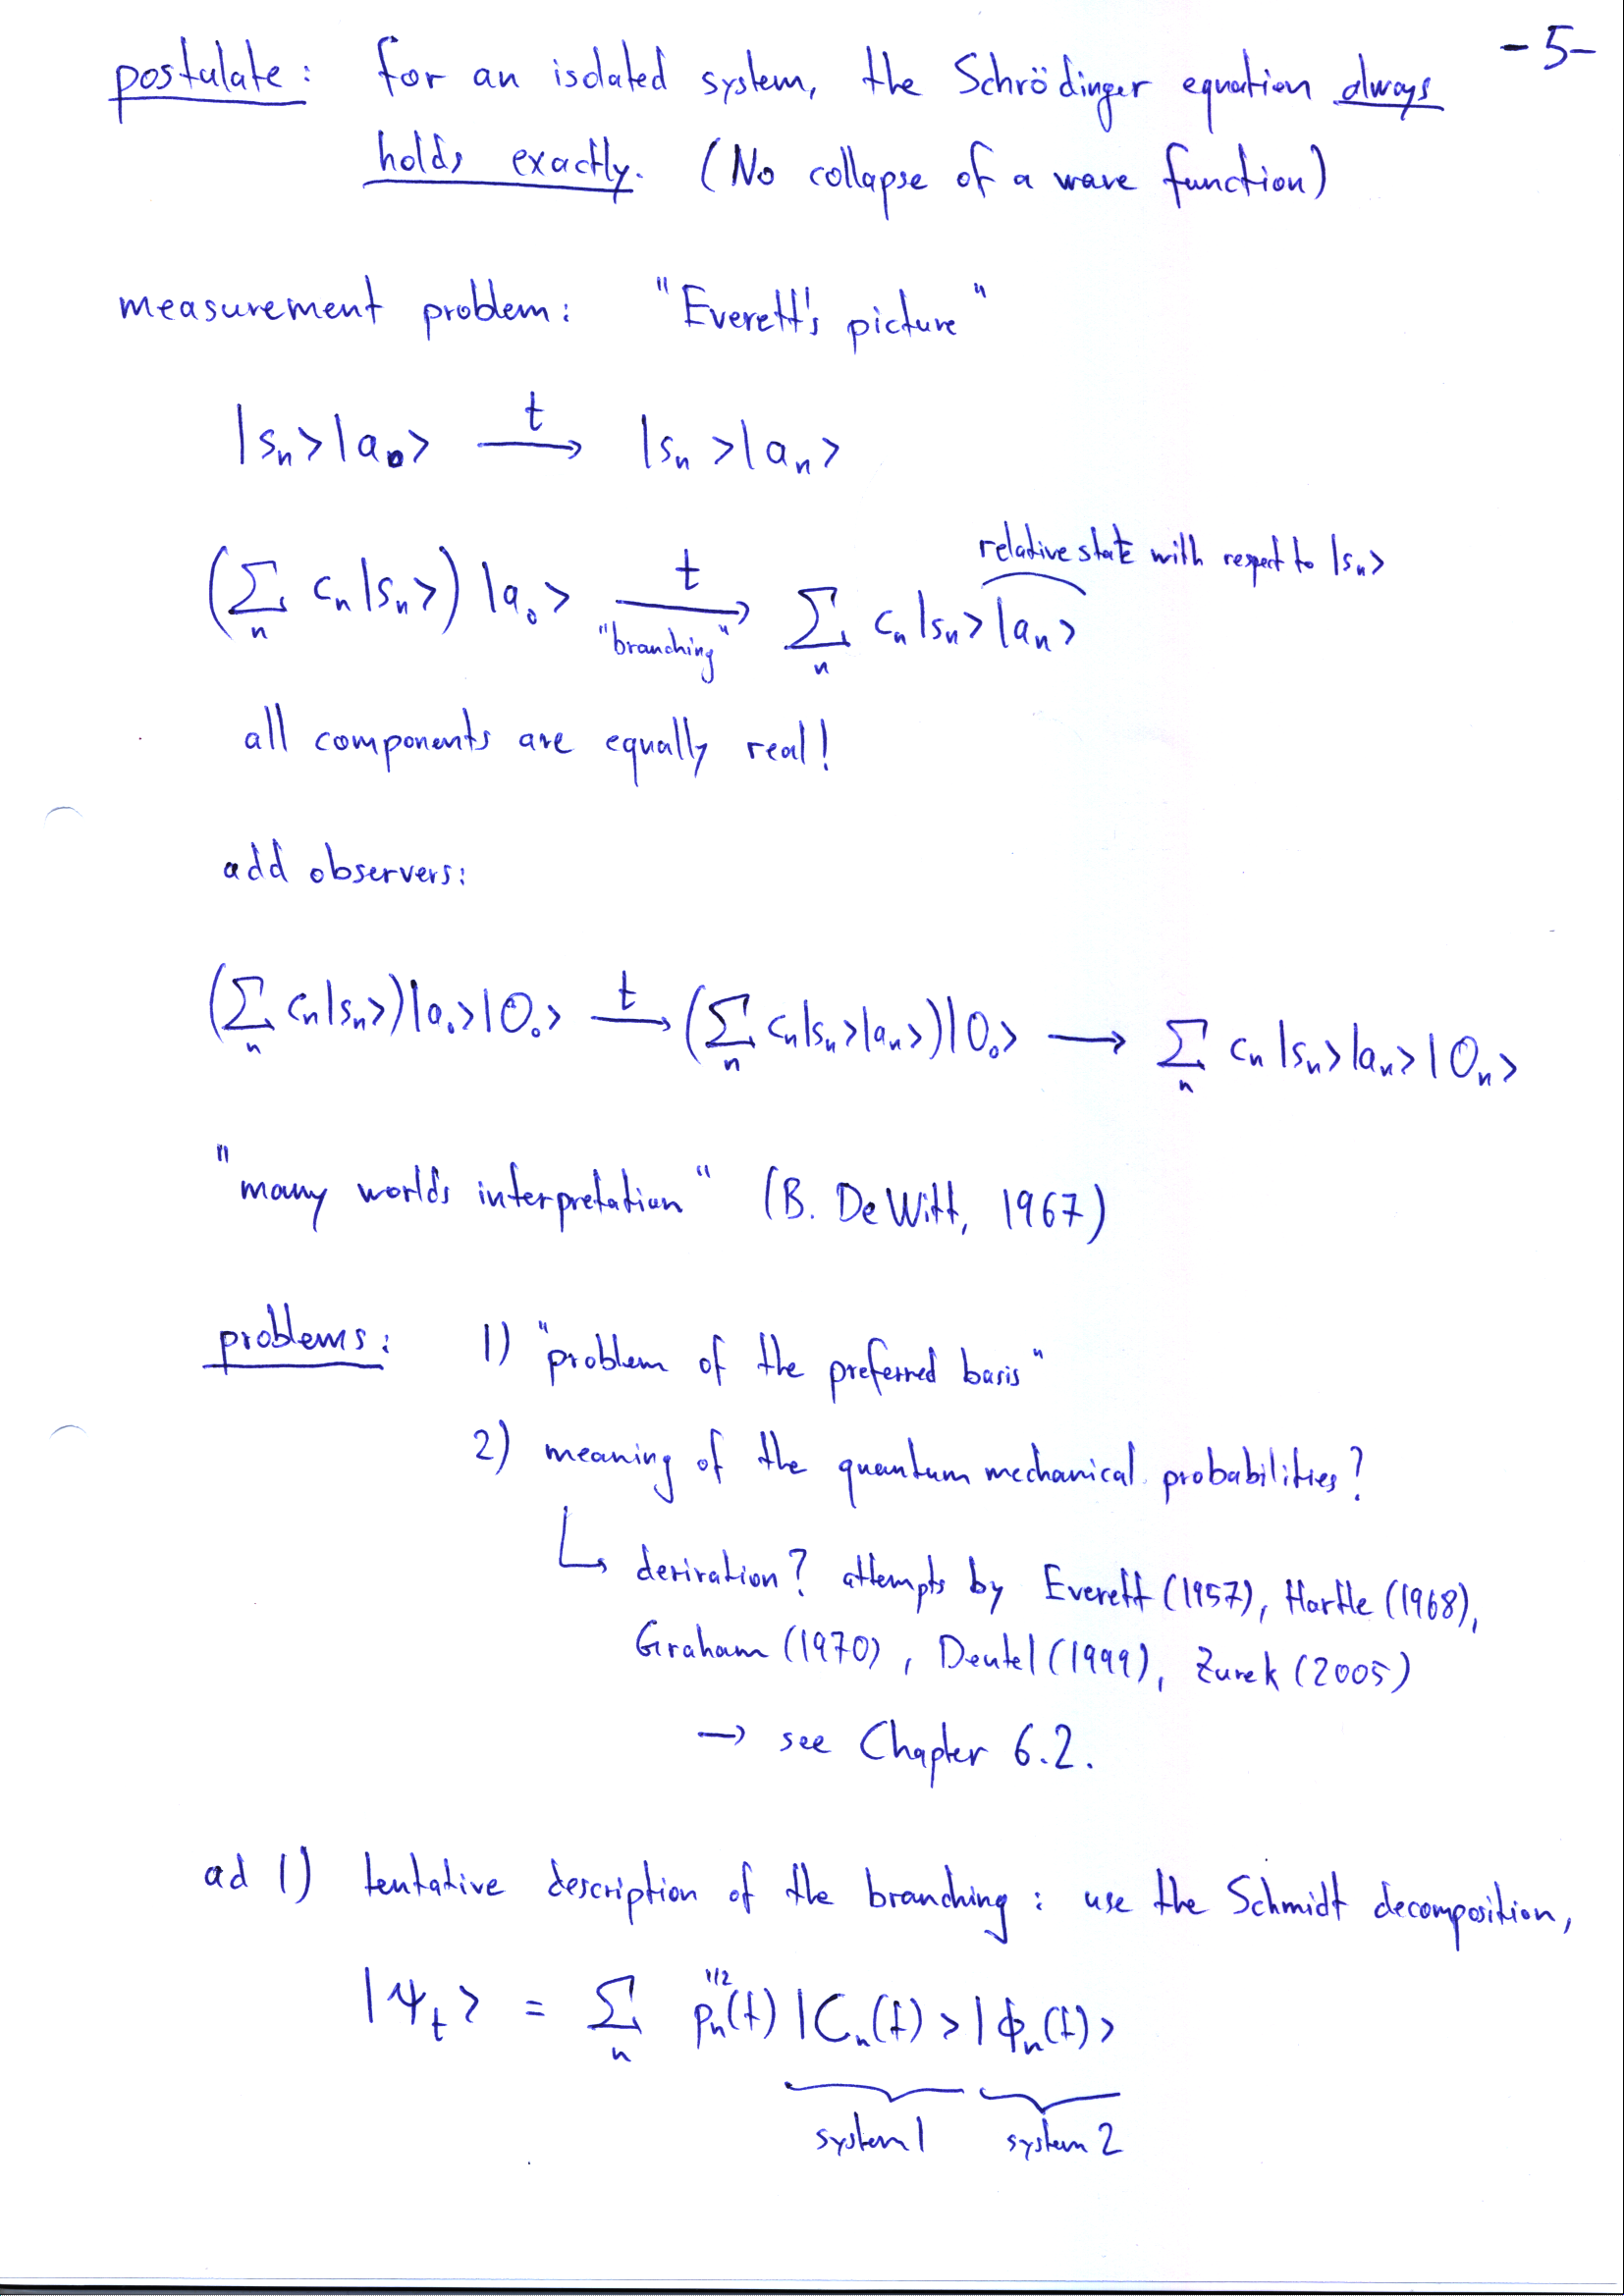 -5-
postulate: for an isolated system, the Schrödinger equation always
holds exactly. (No collapse of a wave function)
measurement problem: "Everett's picture"
|s_n>|a_0> —t→ |s_n>|a_n>
relative state with respect to |s_n>
(∑_n c_n|s_n>) |a_0> —t→ "branching" ∑_n c_n|s_n>|a_n>
all components are equally real!
add observers:
(∑_n c_n|s_n>)|a_0>|O_0> —t→ (∑_n c_n|s_n>|a_n>)|O_0> → ∑_n c_n|s_n>|a_n>|O_n>
"many worlds interpretation" (B. DeWitt, 1967)
problems: 1) "problem of the preferred basis"
2) meaning of the quantum mechanical probabilities?
↳ derivation? attempts by Everett (1957), Hartle (1968),
Graham (1970), Deutel (1999), Zurek (2005)
→ see Chapter 6.2.
ad 1) tentative description of the branching: use the Schmidt decomposition,
|ψ_t> = ∑_n p_n^{1/2}(t) |C_n(t)>|ϕ_n(t)>
system 1 system 2